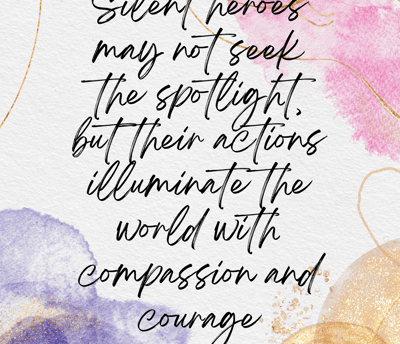 Silent heroes
may not seek
the spotlight,
but their actions
illuminate the
world with
compassion and
courage